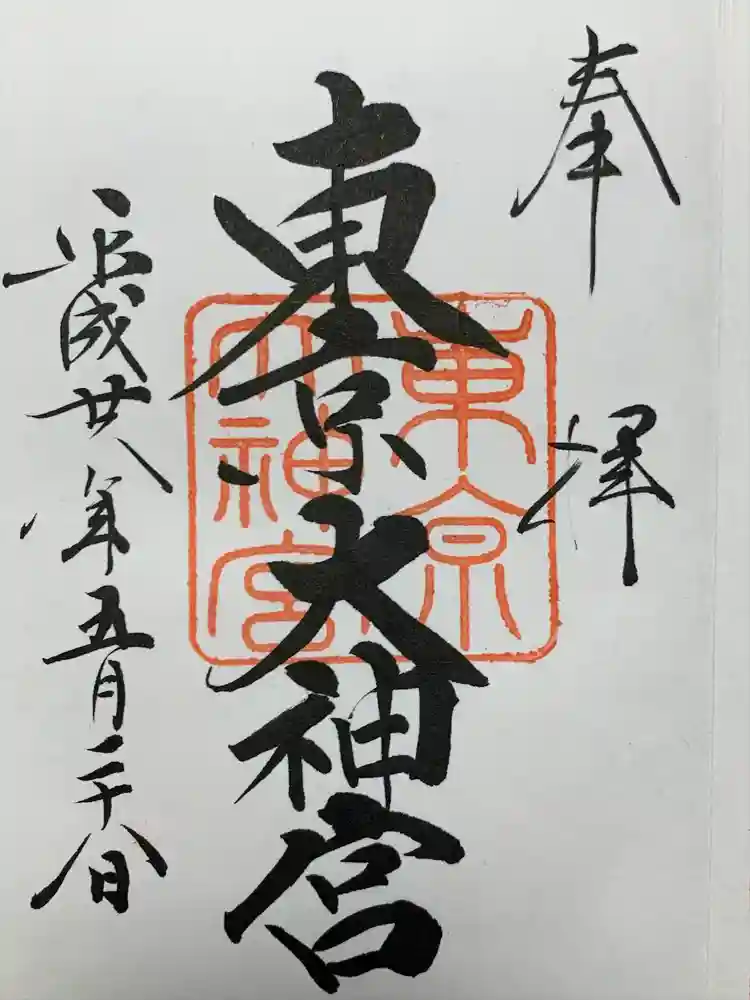 奉拝
東京大神宮
東京大神宮
平成廿八年五月二十八日